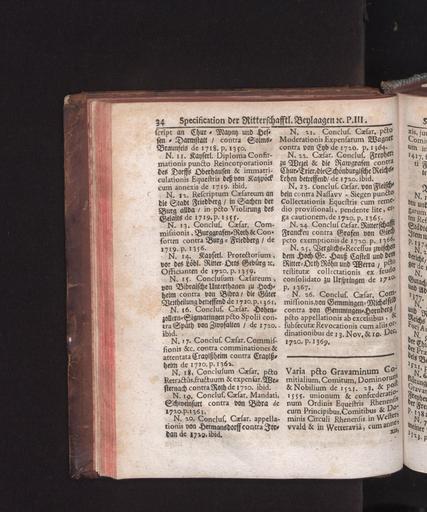 34 Specification der Ritterschafftl. Beylaagen ꝛc. P. III.
script an Chur-Maynz und Hes-
sen-Darmstatt / contra Solms-
Braunfels de 1718. p. 1350.
N. 11. Kayserl. Diploma Confir-
mationis puncto Reincorporationis
des Dorffs Oberhausen & immatri-
culationis Equestris deß von
cum annexis de 1719. ibid.
N. 12. Rescriptum Cæsareum an
die Stadt Friedberg / in Sachen der
Burg allda / in pcto Violirung des
Gelaits de 1719. p. 1355.
N. 13. Conclus. Cæsar. Com-
missionis, Burggrafen-Roth & Con-
sorten contra Burg-Friedberg / de
1719. p. 1356.
N. 14. Kayserl. Protectorium,
vor des Löbl. Ritter-Orts Gebürg ꝛc.
Officianten de 1720. p. 1359.
N. 15. Conclusum Cæsareum,
von Bibraische Unterthanen zu Hoch-
heim contra von Bibra / die Güter
Vertheilung betreffend de 1720. p. 1361.
N. 16. Conclus. Cæsar. Hohen-
zollern-Sigmaringen pcto Spolii con-
tra Späth von Zwyfalten / de 1720.
ibid.
N. 17. Conclus. Cæsar. Commis-
sionis &c. contra comminationes &
attentata Crayltsheim contra Crayltß-
heim de 1720. p. 1362.
N. 18. Conclusum Cæsar. pcto
Retractûs, fructuum & expensar. We-
sternach contra Roth de 1720. ibid.
N. 19. Conclus. Cæsar. Mandati.
Schweinfurt contra von Bibra de
1720. p. 1363.
N. 20. Conclus. Cæsar. appella-
tionis von Hermansdorff contra Jor-
dan de 1720. ibid.
N. 21. Conclus. Cæsar. pcto
Moderationis Expensarum Wagner
contra von Eyb de 1720. p. 1364.
N. 22. Cæsar. Conclus. Freyherr
zu Wezel & die Raugrafen contra
Chur-Trier, die Schönburgische Reichs-
Lehen betreffend / de 1720. ibid.
N. 23. Conclus. Cæsar. von Fleisch-
bein contra Nassaw-Siegen puncto
Collectationis Equestris cum reme-
dio provisionali, pendente lite, er-
ga cautionem, de 1720. p. 1365.
N. 24. Conclus. Cæsar. Ritterschafft
Francken contra Grafen von Giech
pcto exemptionis de 1720. p. 1366.
N. 25. Vergleichs-Recessus zwischen
dem Hoch-Gr. Hauß Castell und dem
Ritter-Orth Röhn und Werra / pcto
restitutæ collectationis ex feudo
consolidato zu Urspringen de 1720.
p. 1367.
N. 26. Conclus. Cæsar. Com-
missionis, von Gemmingen-Michelfeld
contra von Gemmingen-Hornberg /
pcto appellationis ab excessibus, &
subsecutæ Revocationis cum aliis or-
dinationibus de 13. Nov. & 10. Dec.
1720. p. 1369.
Varia pcto Gravaminum Co-
mitialium, Comitum, Dominorum
& Nobilium de 1523. 23. & post
1555. unionum & confœderatio-
num Ordinis Equestris Rhenensis
cum Principibus, Comitibus & Do-
minis Circuli Rhenensis in Wester-
vvald & in Wetteravia; cum annex